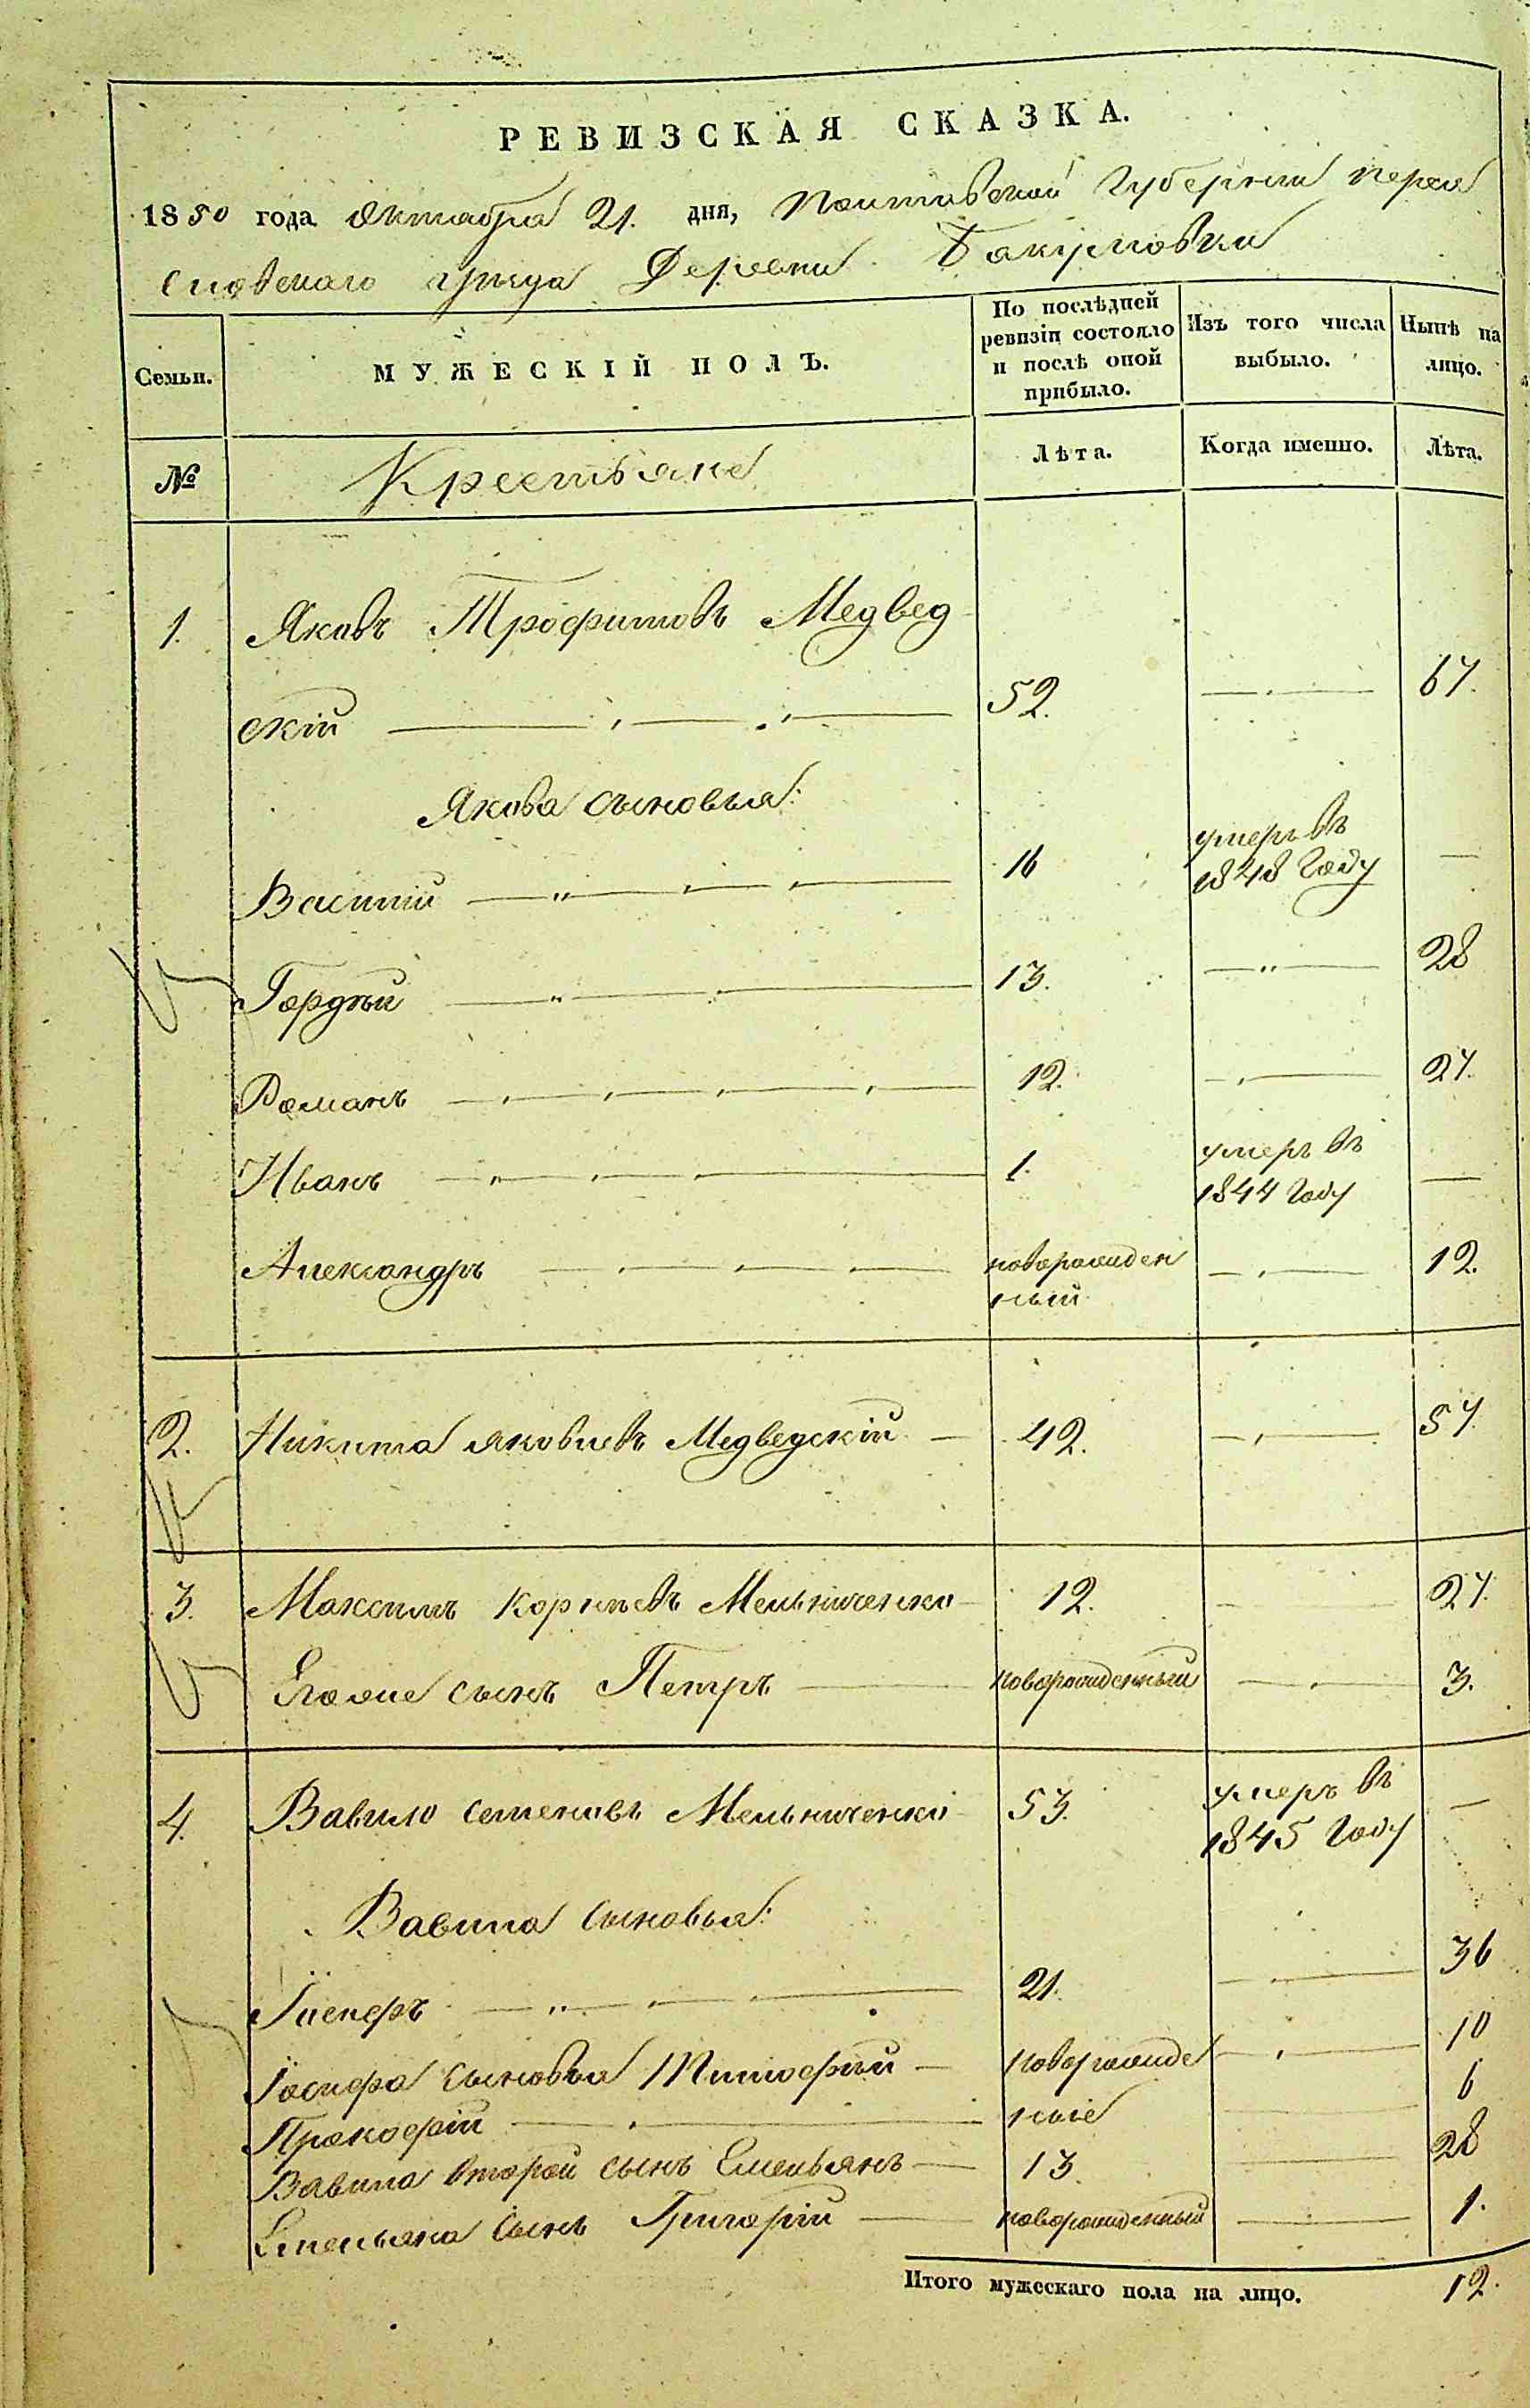 РЕВИЗСКАЯ СКАЗКА.
1850 года октября 21. дня, Полтавской Губерніи Перея
славскаго уѣзда Деревни Бакумовки
Семьи.
МУЖЕСКІЙ ПОЛЪ.
По послѣдней
ревизіи состояло
и послѣ оной
прибыло.
Изъ того числа
выбыло.
Нынѣ на
лицо.
№
Крестьяне
Лѣта.
Когда именно.
Лѣта.
1. Яковъ Трофимовъ Медвед
скій 52. 67.
Якова сыновья:
Василій 16 умеръ въ
1848 году
Гордѣй 13. 28
Романъ 12. 27.
Иванъ 1. умеръ въ
1844 году
Александръ новорожден
ный 12.
2. Никита Яковлевъ Медведскій 42. 57.
3. Максимъ Корнѣевъ Мельниченко 12. 27.
Его же сынъ Петръ новорожденный 3.
4. Вавило Семеновъ Мельниченко 53. умеръ въ
1845 году
Вавила сыновья:
Іосифъ 21. 36
Іосифа сыновья Тимофей новорожде 10
Прокофій ные 6
Вавила второй сынъ Емельянъ 13 28
Емельяна сынъ Григорій новорожденный 1.
Итого мужескаго пола на лицо. 12.